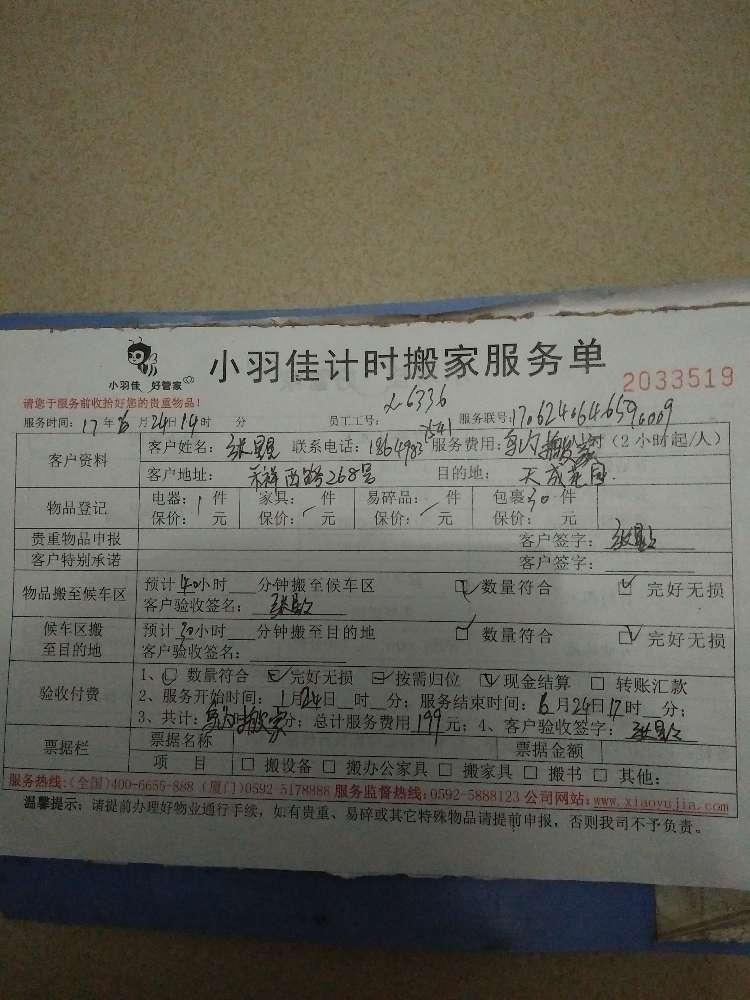 小羽佳 好管家
小羽佳计时搬家服务单
2033519
请您于服务前收拾好您的贵重物品!
服务时间: 17年6月24日14时 分 员工工号: 6336 服务联号:
客户资料 客户姓名: 联系电话: 服务费用: 时(2小时起/人)
客户地址: 禾祥西路268号 目的地: 天成花园
物品登记 电器: 件 家具: 件 易碎品: 件 包裹30件
保价: 元 保价: 元 保价: 元 保价: 元
贵重物品申报 客户签字:
客户特别承诺 客户签字:
物品搬至候车区 预计40小时 分钟搬至候车区 数量符合 完好无损
客户验收签名:
候车区搬至目的地 预计30小时 分钟搬至目的地 数量符合 完好无损
客户验收签名:
验收付费 1、 数量符合 完好无损 按需归位 现金结算 转账汇款
2、服务开始时间: 月24日 时 分; 服务结束时间: 6月24日17时 分;
3、共计: 分; 总计服务费用199元; 4、客户验收签字:
票据栏 票据名称 票据金额
项 目 搬设备 搬办公家具 搬家具 搬书 其他:
服务热线:(全国)400-6655-888 (厦门)0592-5178888 服务监督热线:0592-5888123 公司网站:www.xiaoyujia.com
温馨提示: 请提前办理好物业通行手续, 如有贵重、易碎或其它特殊物品请提前申报, 否则我司不予负责。